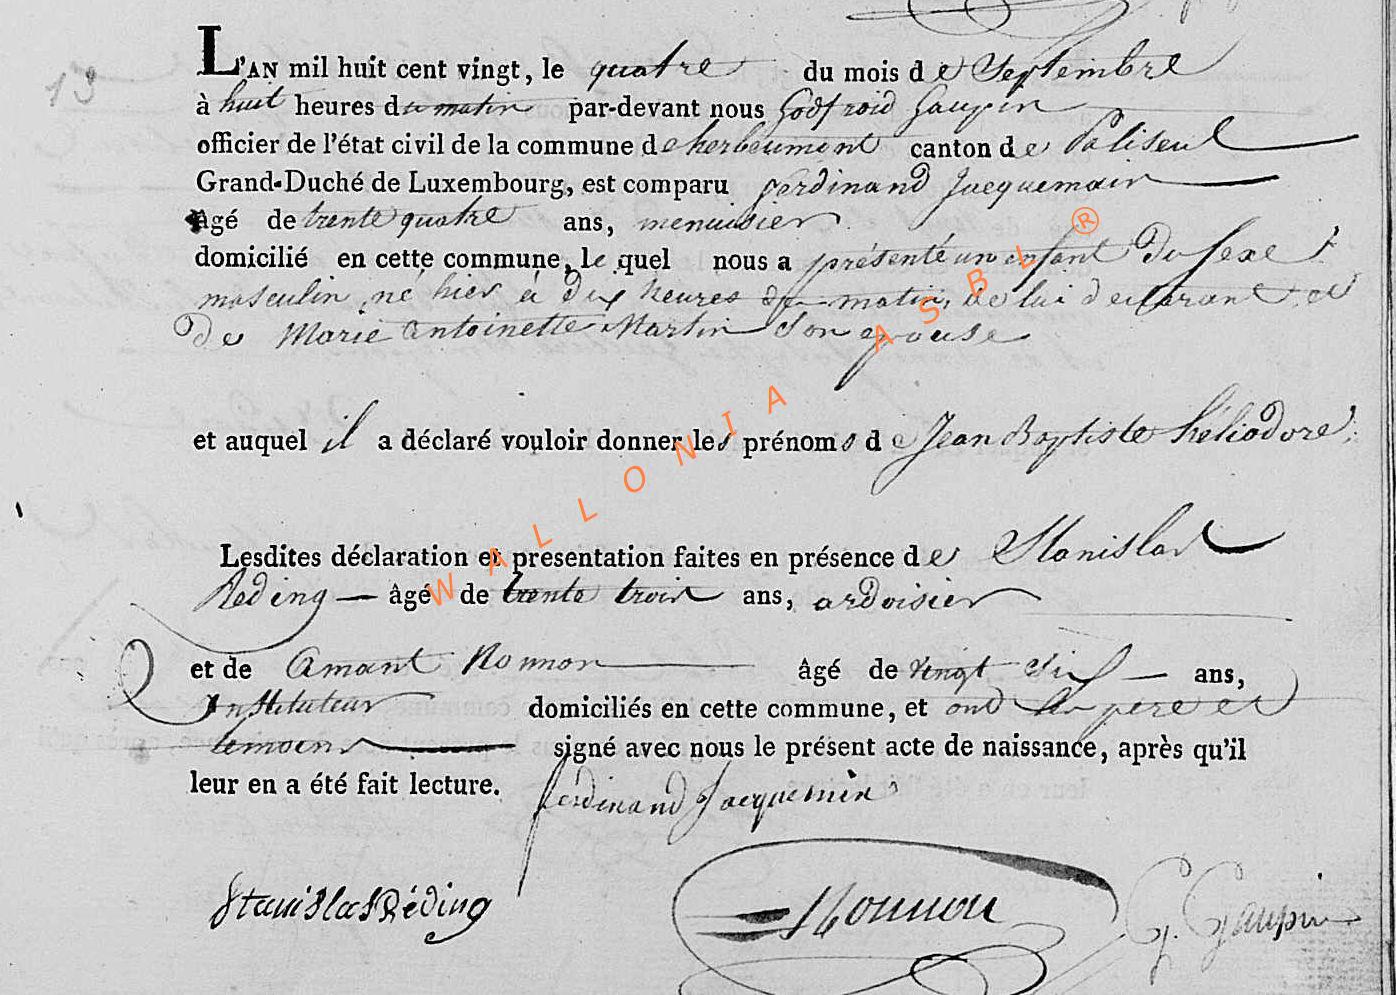 13
L'AN mil huit cent vingt, le quatre du mois de Septembre
à huit heures du matin par-devant nous Godfroid Gaupin
officier de l'état civil de la commune de herbeumont canton de Paliseul
Grand-Duché de Luxembourg, est comparu ferdinand Jacquemain
âgé de trente quatre ans, menuisier
domicilié en cette commune, le quel nous a présenté un enfant du sexe
masculin, né hier à dix heures du matin, de lui declarant et
de Marie antoinette Martin Son epouse
et auquel il a déclaré vouloir donner les prénoms de Jean Baptiste héliodore
Lesdites déclaration et presentation faites en présence de Stanislas
Reding âgé de trente trois ans, ardoisier
et de Amant Nonnon âgé de vingt six ans,
Instituteur domiciliés en cette commune, et ont les pere et
temoins signé avec nous le présent acte de naissance, après qu'il
leur en a été fait lecture.
ferdinand Jacquemin
Stanislas Réding
Nonnon
G. Gaupin
WALLONIA ASBL ®